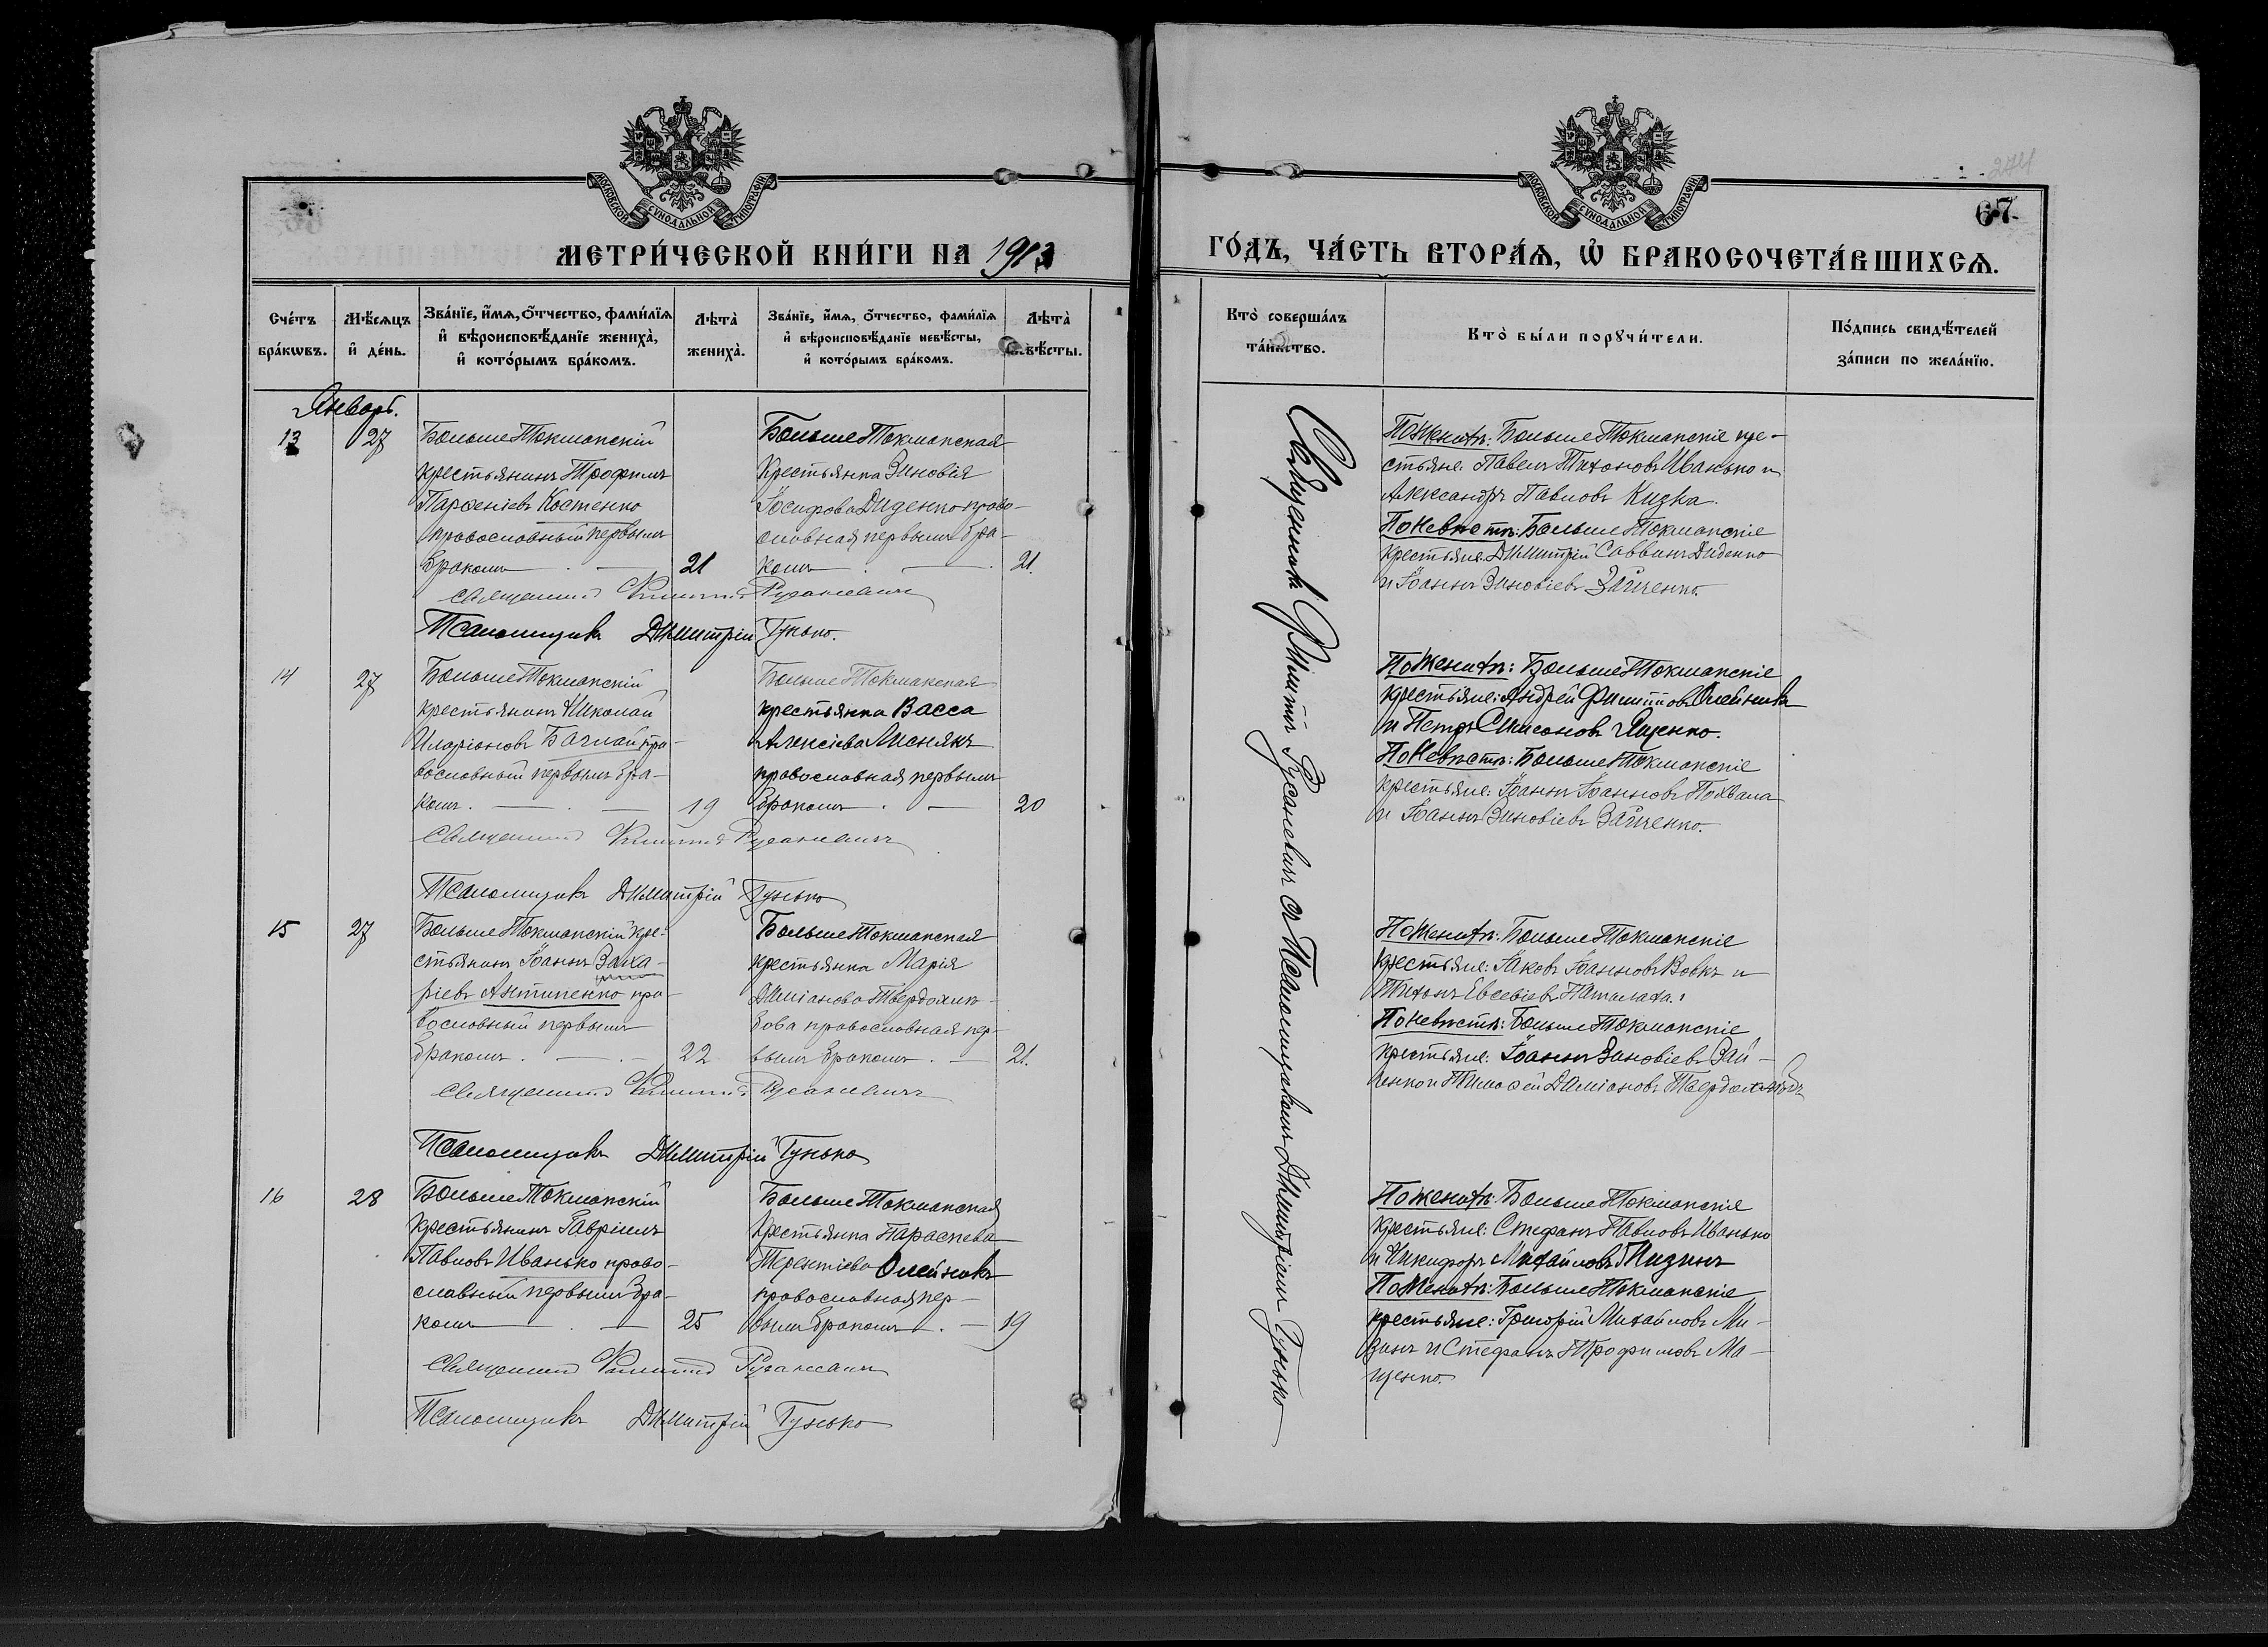 МОСКОВСКОЙ СѴНОДАЛЬНОЙ ТИПОГРАФІИ
МЕТРИ́ЧЕСКОЙ КНИ́ГИ НА 1913
Сче́тъ бра́кѡвъ.
Мѣ́сяцъ и҆ де́нь.
Зва́нїе, и҆́мѧ, ѻ҆́тчество, фами́лїѧ и҆ вѣроисповѣ́данїе женихà, и҆ кото́рымъ бра́комъ.
Лѣтà женихà.
Зва́нїе, и҆́мѧ, ѻ҆́тчество, фами́лїѧ и҆ вѣроисповѣ́данїе невѣ́сты, и҆ кото́рымъ бра́комъ.
Лѣтà невѣ́сты.
Январь.
13
27
БольшеТокмакскій
крестьянинъ Трофимъ
Парѳеніевъ Костенко
православный первымъ
бракомъ
21
БольшеТокмакская
крестьянка Зиновія
Іосифова Диденко право-
славная первымъ бра-
комъ
21.
Священникъ Филиппъ Русаневичъ
Псаломщикъ Димитрій Гунько.
14
27
БольшеТокмакскій
крестьянинъ Николай
Иларіоновъ Баглай пра-
вославный первымъ бра-
комъ.
19
БольшеТокмакская
крестьянка Васса
Алексіева Лиснякъ
православная первымъ
бракомъ.
20
Священникъ Филиппъ Русаневичъ
Псаломщикъ Димитрій Гунько
15
27
БольшеТокмакскій кре-
стьянинъ Іоаннъ Заха-
ріевъ Антипенко пра-
вославный первымъ
бракомъ.
22
БольшеТокмакская
крестьянка Марія
Даміанова Твердохлѣ-
бова православная пер-
вымъ бракомъ.
21.
Священникъ Филиппъ Русаневичъ
Псаломщикъ Димитрій Гунько
16
28
БольшеТокмакскій
крестьянинъ Гавріилъ
Павловъ Иванько право-
славный первымъ бра-
комъ
25
БольшеТокмакская
крестьянка Параскева
Терентіева Олейникъ
православная пер-
вымъ бракомъ.
19
Священникъ Филиппъ Русаневичъ
Псаломщикъ Димитрій Гунько
274
67
МОСКОВСКОЙ СѴНОДАЛЬНОЙ ТИПОГРАФІИ
ГО́ДЪ, ЧА́СТЬ ВТОРА́Ѧ, Ѽ БРАКОСОЧЕТА́ВШИХСѦ.
Кто̀ соверша́лъ та́инство.
Кто̀ бы́ли порꙋчи́тели.
По́дпись свидѣ́телей за́писи по жела́нїю.
Священникъ Филиппъ Русаневичъ съ Псаломщикомъ Димитріемъ Гунько
По женихѣ: БольшеТокмакскіе кре-
стьяне: Павелъ Тихоновъ Иванько и
Александръ Павловъ Кизка.
По невѣстѣ: БольшеТокмакскіе
крестьяне: Димитрій Саввинъ Диденко
и Іоаннъ Зиновіевъ Зайченко.
По женихѣ: БольшеТокмакскіе
крестьяне: Андрей Филипповъ Олейникъ
и Петръ Симеоновъ Яценко.
По невѣстѣ: БольшеТокмакскіе
крестьяне: Іоаннъ Іоанновъ Похвала
и Іоаннъ Зиновіевъ Зайченко.
По женихѣ: БольшеТокмакскіе
крестьяне: Іаковъ Іоанновъ Вовкъ и
Тихонъ Евсевіевъ
По невѣстѣ: БольшеТокмакскіе
крестьяне: Іоаннъ Зиновіевъ Зай-
ченко и Тимоѳей Даміановъ Твердохлѣбъ
По женихѣ: БольшеТокмакскіе
крестьяне: Стефанъ Павловъ Иванько
и Никифоръ Михайловъ Мизинъ
По женихѣ: БольшеТокмакскіе
крестьяне: Григорій Михайловъ Ми-
зинъ и Стефанъ Трофимовъ Ма-
щенко.